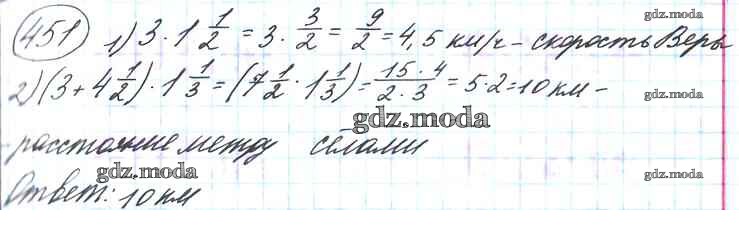 451 1) 3 · 1 1/2 = 3 · 3/2 = 9/2 = 4,5 км/ч - скорость Веры
2) (3 + 4 1/2) · 1 1/3 = (7 1/2 · 1 1/3) = 15 · 4 / 2 · 3 = 5 · 2 = 10 км -
расстояние между сёлами
Ответ: 10 км
gdz.moda
gdz.moda
gdz.moda
gdz.moda
gdz.moda
gdz.moda
gdz.moda